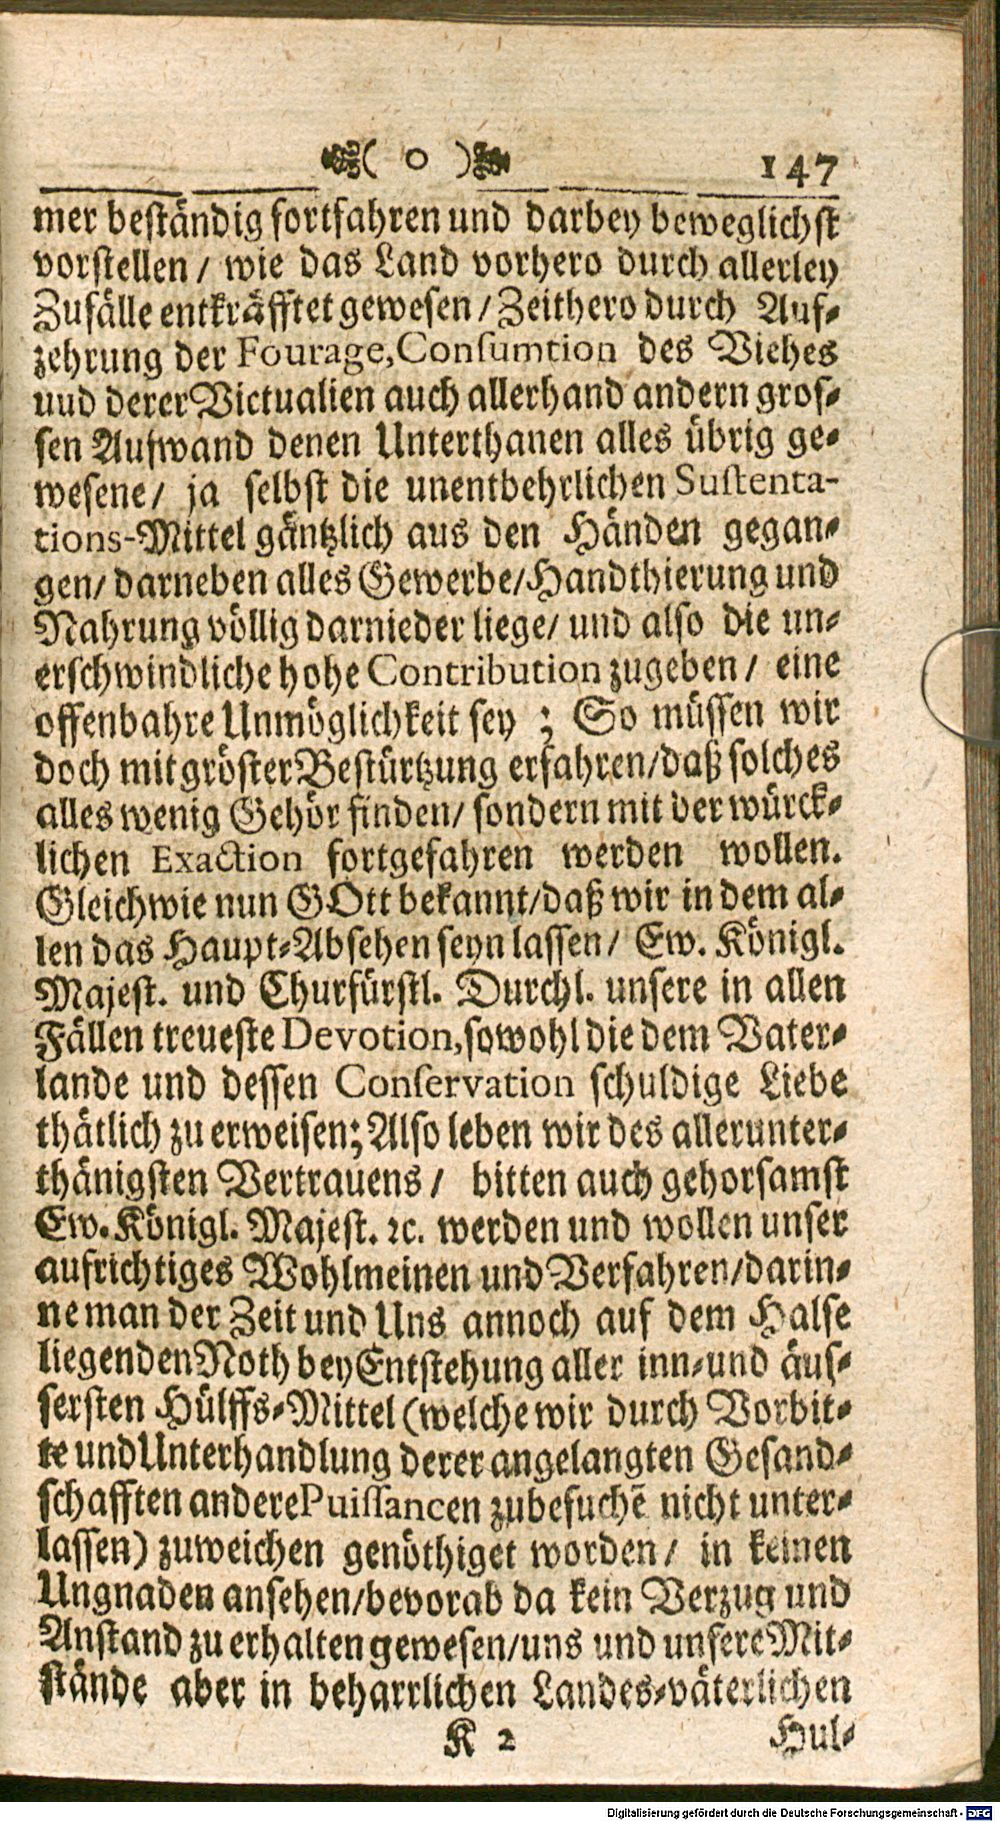 ( o ) 147
mer beständig fortfahren und darbey beweglichst
vorstellen / wie das Land vorhero durch allerley
Zufälle entkräfftet gewesen / Zeithero durch Auf-
zehrung der Fourage, Consumtion des Viehes
uud derer Victualien auch allerhand andern gros-
sen Aufwand denen Unterthanen alles übrig ge-
wesene / ja selbst die unentbehrlichen Sustenta-
tions-Mittel gäntzlich aus den Händen gegan-
gen / darneben alles Gewerbe / Handthierung und
Nahrung völlig darnieder liege / und also die un-
erschwindliche hohe Contribution zugeben / eine
offenbahre Unmöglichkeit sey ; So müssen wir
doch mit gröster Bestürtzung erfahren / daß solches
alles wenig Gehör finden / sondern mit der würck-
lichen Exaction fortgefahren werden wollen.
Gleichwie nun GOtt bekannt / daß wir in dem al-
len das Haupt-Absehen seyn lassen / Ew. Königl.
Majest. und Churfürstl. Durchl. unsere in allen
Fällen treueste Devotion, sowohl die dem Vater-
lande und dessen Conservation schuldige Liebe
thätlich zu erweisen; Also leben wir des allerunter-
thänigsten Vertrauens / bitten auch gehorsamst
Ew. Königl. Majest. ꝛc. werden und wollen unser
aufrichtiges Wohlmeinen und Verfahren / darin-
ne man der Zeit und Uns annoch auf dem Halse
liegenden Noth bey Entstehung aller inn- und äus-
sersten Hülffs-Mittel (welche wir durch Vorbit-
te und Unterhandlung derer angelangten Gesand-
schafften andere Puissancen zubesuchē nicht unter-
lassen) zuweichen genöthiget worden / in keinen
Ungnaden ansehen / bevorab da kein Verzug und
Anstand zu erhalten gewesen / uns und unsere Mit-
stände aber in beharrlichen Landes-väterlichen
K 2 Hul-
Digitalisierung gefördert durch die Deutsche Forschungsgemeinschaft - DFG